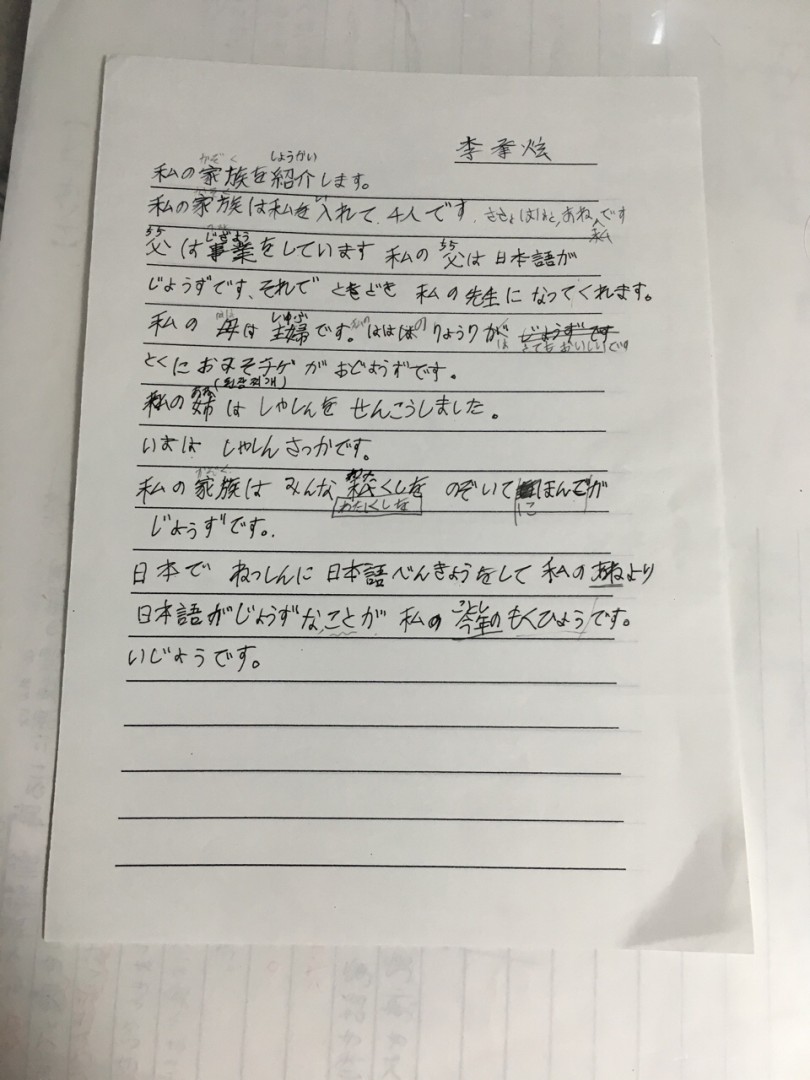 李承炫
私の家族を紹介します。
私の家族は私を入れて、4人です。ちちとははと、あね、私です
父は事業をしています 私の父は日本語が
じょうずです、それで ときどき 私の先生に なってくれます。
私の 母は 主婦です。ははは りょうりが じょうずです
は とてもおいしいです
とくに おみそチゲ が おじょうずです。
(된장찌개)
私の姉は しゃしんを せんこうしました。
いまは しゃしん さっかです。
私の家族は みんな 私くしを のぞいて にほんごが
わたくしを
じょうずです。
日本で ねっしんに 日本語べんきょうをして 私の あねより
日本語がじょうずな、ことが 私の 今年の もくひょうです。
いじょうです。